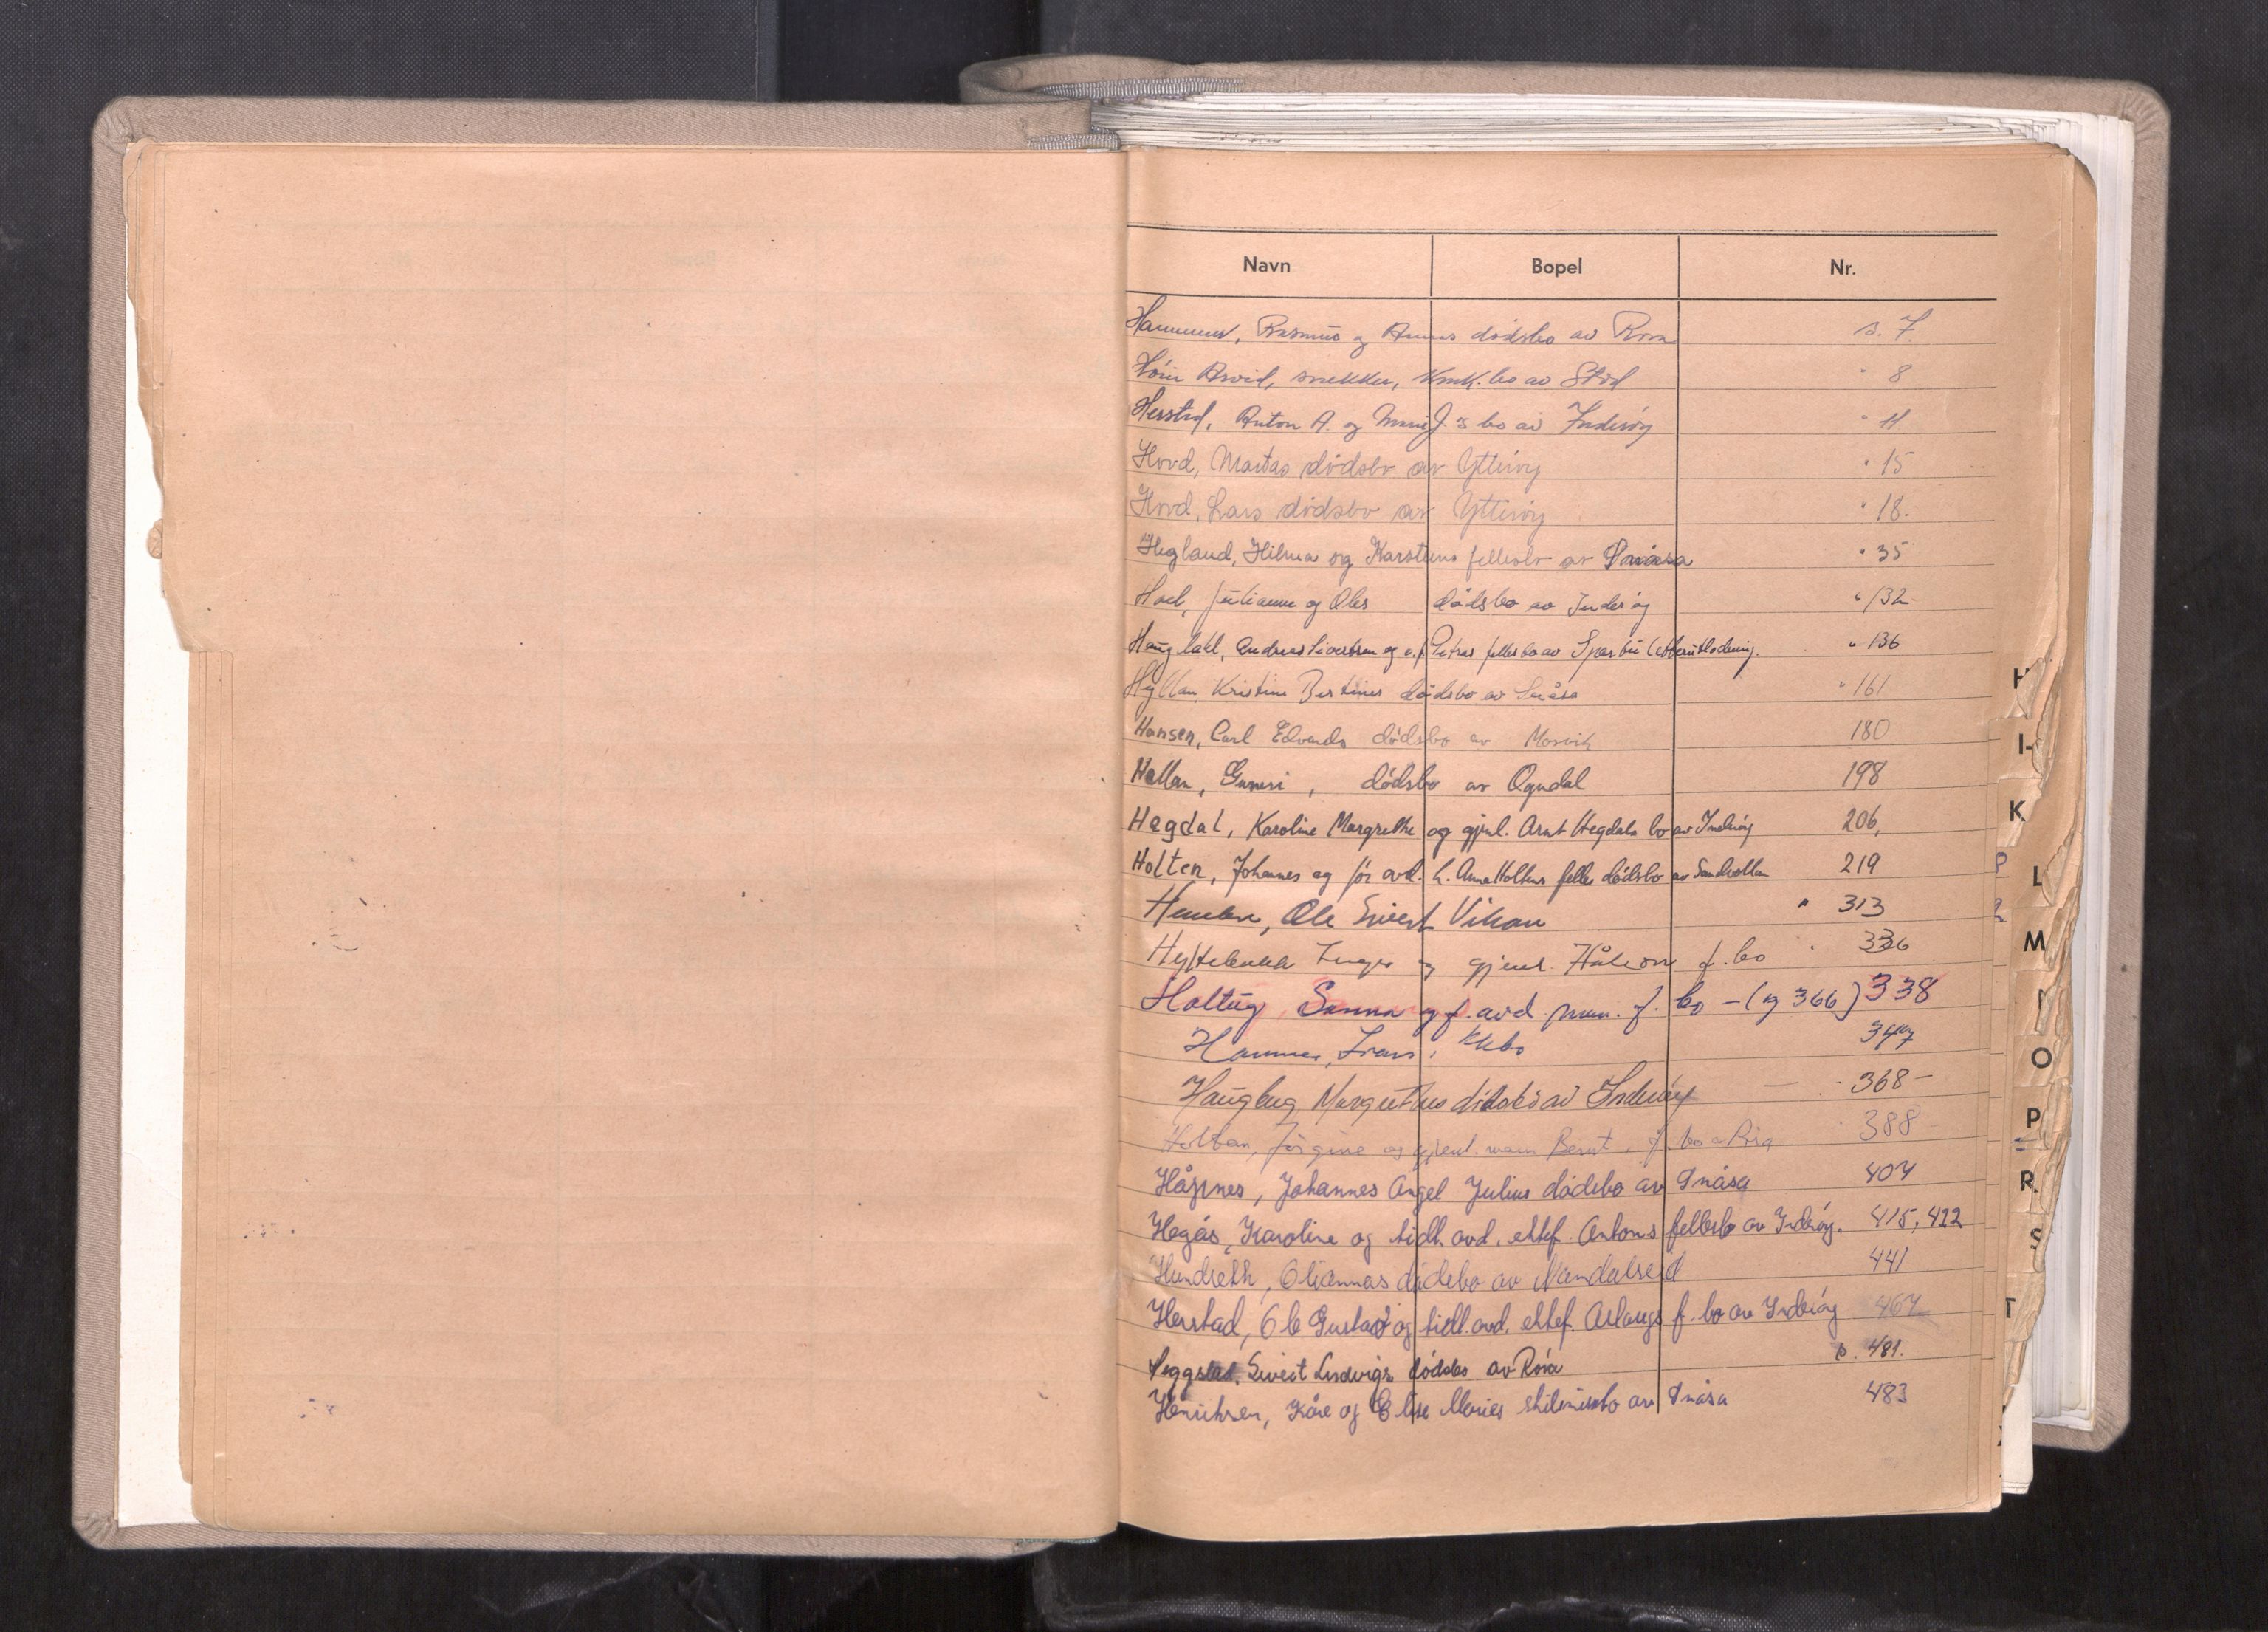 Navn Bopel Nr.
Hammer, Rasmus og Annas dødsbo av Røra s. 7.
Høin Arvid, snekker, konk. bo av Stod " 8
Herstad, Anton A. og Marie J.s bo av Inderøy " 11
Hovd, Martas dødsbo av Ytterøy " 15
Hovd, Lars dødsbo av Ytterøy " 18.
Hegland, Hilma og Karstens fellesbo av Snåsa " 35
Hoel, Julianne og Oles dødsbo av Inderøy " 132
Haugdahl, Andreas Sivertsen og e. f. Petras fellesbo av Sparbu (etterutlodning. " 136
Hyllan, Kristine Bertines dødsbo av Snåsa " 161
Hansen, Carl Edvards dødsbo av Mosvik 180
Hallan, Gunneri, dødsbo av Ogndal 198
Hegdal, Karoline Margrethe og gjenl. Arnt Hegdals bo av Inderøy 206,
Holten, Johannes og før avd. h. Anna Holtens felles dødsbo av Sandvollan 219
Ole Sivert Vikan " 313
Inger og gjenl. Håkon f. bo " 336
Holtug, Sanna og f. avd. mann. f. bo – (og 366) 338
Hammer, Frans: kkbo 347
Haugberg Margrethes dødsbo av Inderøy — " 368 –
Holtan, Jørgine og gjenl. mann Bernt, f. bo a Røra 388
Hågsnes, Johannes Angel Julius dødsbo av Snåsa 407
Hegås, Karoline og tidl. avd. ektef. Antons fellesbo av Inderøy. 415, 422
Hundseth, Oliannas dødsbo av Namdalseid 441
Herstad, Ole Gustav og tidl. avd. ektef. Aslaugs f. bo av Inderøy 467
Heggstad, Sivert Ludvigs dødsbo av Røra s. 481.
Henriksen, Kåre og Elise Maries skilsmissbo av Snåsa 483
H
I-
K
L
M
O
P
R
S
T